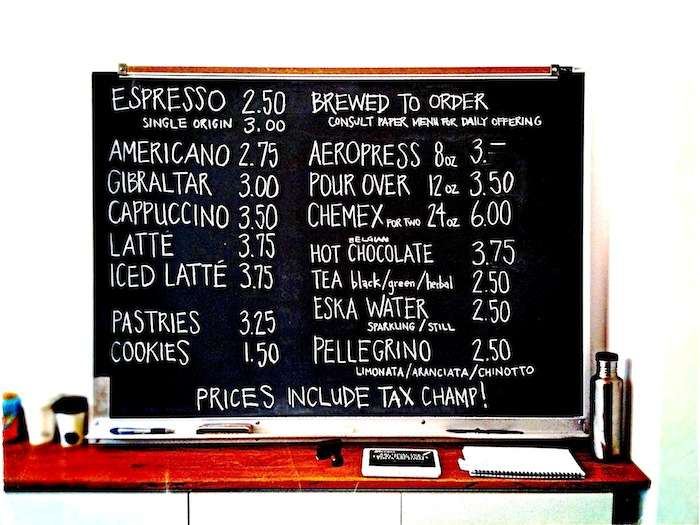 ESPRESSO 2.50
SINGLE ORIGIN 3.00
AMERICANO 2.75
GIBRALTAR 3.00
CAPPUCCINO 3.50
LATTÉ 3.75
ICED LATTÉ 3.75
PASTRIES 3.25
COOKIES 1.50
BREWED TO ORDER
CONSULT PAPER MENU FOR DAILY OFFERING
AEROPRESS 8oz 3.—
POUR OVER 12oz 3.50
CHEMEX FOR TWO 24oz 6.00
BELGIAN
HOT CHOCOLATE 3.75
TEA black/green/herbal 2.50
ESKA WATER 2.50
SPARKLING/STILL
PELLEGRINO 2.50
LIMONATA/ARANCIATA/CHINOTTO
PRICES INCLUDE TAX CHAMP!